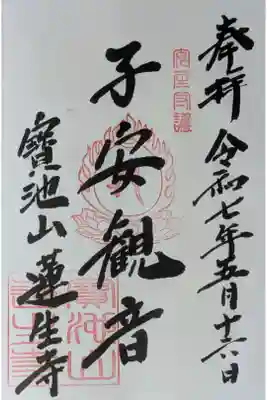 奉拝 令和七年五月十六日
子安観音
寶池山 蓮生寺